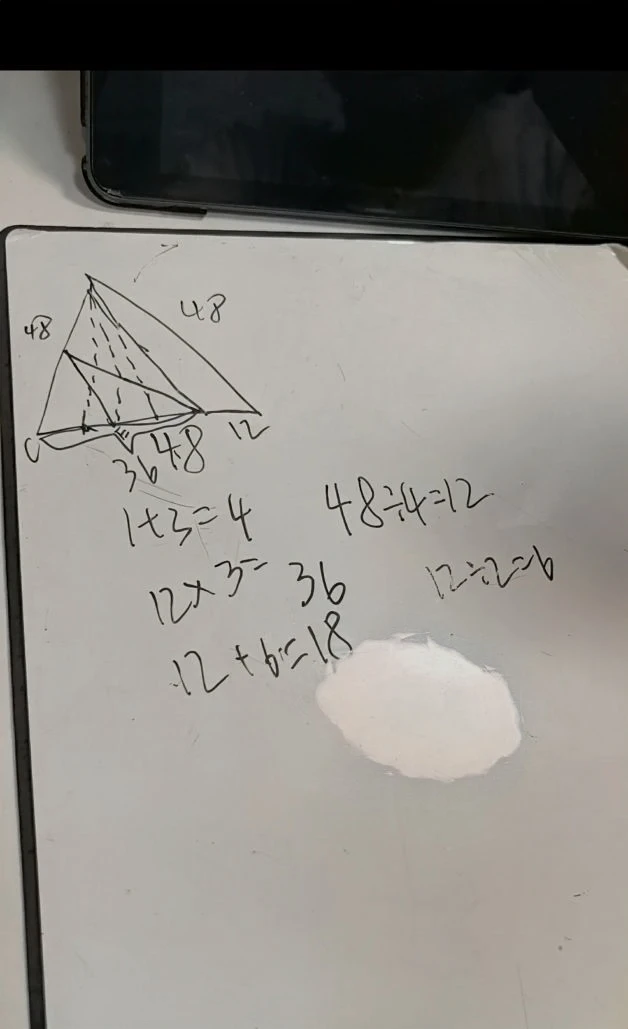 48
48
C
36
48
12
1+3=4
48÷4=12
12×3= 36
12÷2=6
12+6=18